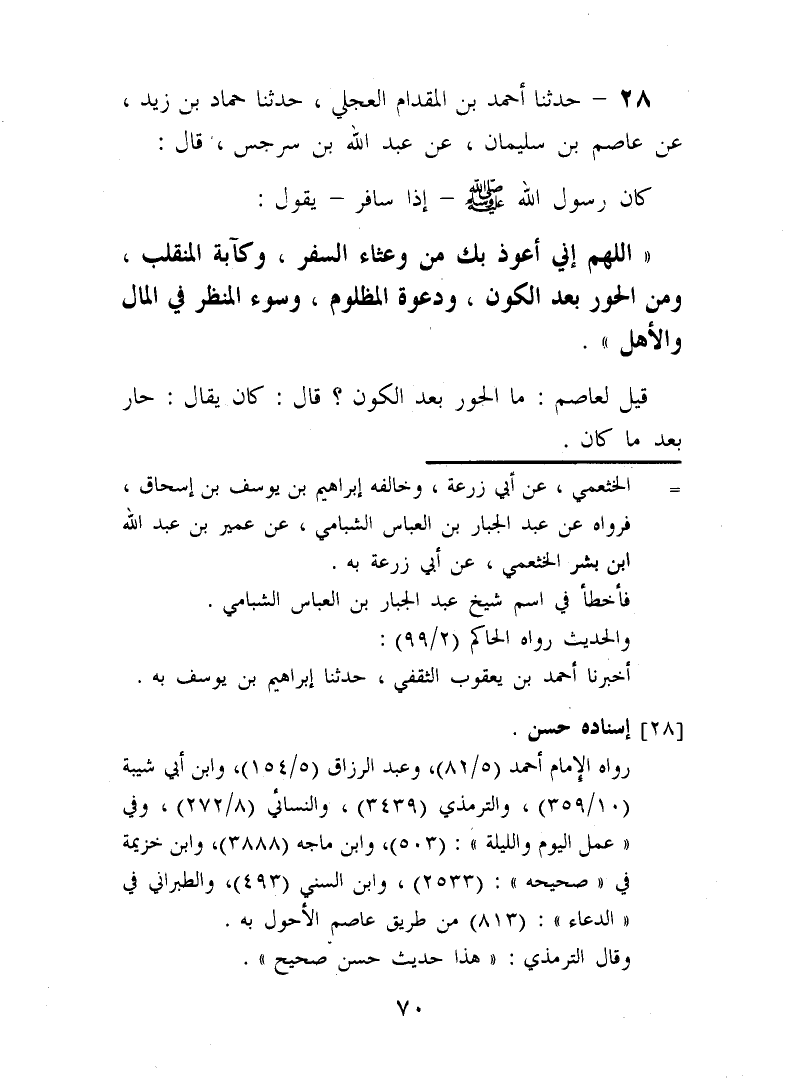 ٢٨ – حدثنا أحمد بن المقدام العجلي ، حدثنا حماد بن زيد ،
عن عاصم بن سليمان ، عن عبد الله بن سرجس ، قال :
كان رسول الله ﷺ – إذا سافر – يقول :
« اللهم إني أعوذ بك من وعثاء السفر ، وكآبة المنقلب ،
ومن الحور بعد الكون ، ودعوة المظلوم ، وسوء المنظر في المال
والأهل » .
قيل لعاصم : ما الحور بعد الكون ؟ قال : كان يقال : حار
بعد ما كان .
= الخثعمي ، عن أبي زرعة ، وخالفه إبراهيم بن يوسف بن إسحاق ،
فرواه عن عبد الجبار بن العباس الشبامي ، عن عمير بن عبد الله
ابن بشر الخثعمي ، عن أبي زرعة به .
فأخطأ في اسم شيخ عبد الجبار بن العباس الشبامي .
والحديث رواه الحاكم (٩٩/٢) :
أخبرنا أحمد بن يعقوب الثقفي ، حدثنا إبراهيم بن يوسف به .
[٢٨] إسناده حسن .
رواه الإمام أحمد (٨٢/٥)، وعبد الرزاق (١٥٤/٥)، وابن أبي شيبة
(٣٥٩/١٠) ، والترمذي (٣٤٣٩) ، والنسائي (٢٧٢/٨) ، وفي
« عمل اليوم والليلة » : (٥٠٣)، وابن ماجه (٣٨٨٨)، وابن خزيمة
في « صحيحه » : (٢٥٣٣) ، وابن السني (٤٩٣)، والطبراني في
« الدعاء » : (٨١٣) من طريق عاصم الأحول به .
وقال الترمذي : « هذا حديث حسن صحيح » .
٧٠